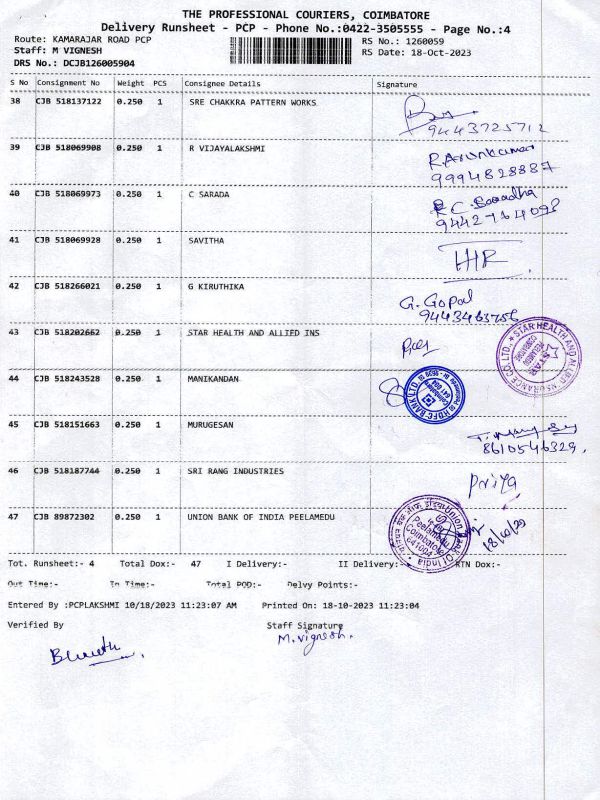 THE PROFESSIONAL COURIERS, COIMBATORE
Delivery Runsheet - PCP - Phone No.:0422-3505555 - Page No.:4
Route: KAMARAJAR ROAD PCP
Staff: M VIGNESH
DRS No.: DCJB126005904
RS No.: 1260059
RS Date: 18-Oct-2023
S No Consignment No Weight PCS Consignee Details Signature
38 CJB 518137122 0.250 1 SRE CHAKKRA PATTERN WORKS
9443725712
39 CJB 518069908 0.250 1 R VIJAYALAKSHMI R.Arunkumar
9994828887
40 CJB 518069973 0.250 1 C SARADA C. Saradha
9442764098
41 CJB 518069928 0.250 1 SAVITHA
42 CJB 518266021 0.250 1 G KIRUTHIKA G. Gopal
9443463756
43 CJB 518202662 0.250 1 STAR HEALTH AND ALLIED INS
STAR HEALTH AND ALLIED INSURANCE CO LTD.,
STAR
44 CJB 518243528 0.250 1 MANIKANDAN
HDFC BANK LTD.
45 CJB 518151663 0.250 1 MURUGESAN
8610546329,
46 CJB 518187744 0.250 1 SRI RANG INDUSTRIES Priya
47 CJB 89872302 0.250 1 UNION BANK OF INDIA PEELAMEDU
Union Bank Of India
Peelamedu
Coimbatore
641004
18/10/23
Tot. Runsheet:- 4 Total Dox:- 47 I Delivery:- II Delivery:- RTN Dox:-
Out Time:- In Time:- Total POD:- Delvy Points:-
Entered By :PCPLAKSHMI 10/18/2023 11:23:07 AM Printed On: 18-10-2023 11:23:04
Verified By Staff Signature
M.Vignesh.